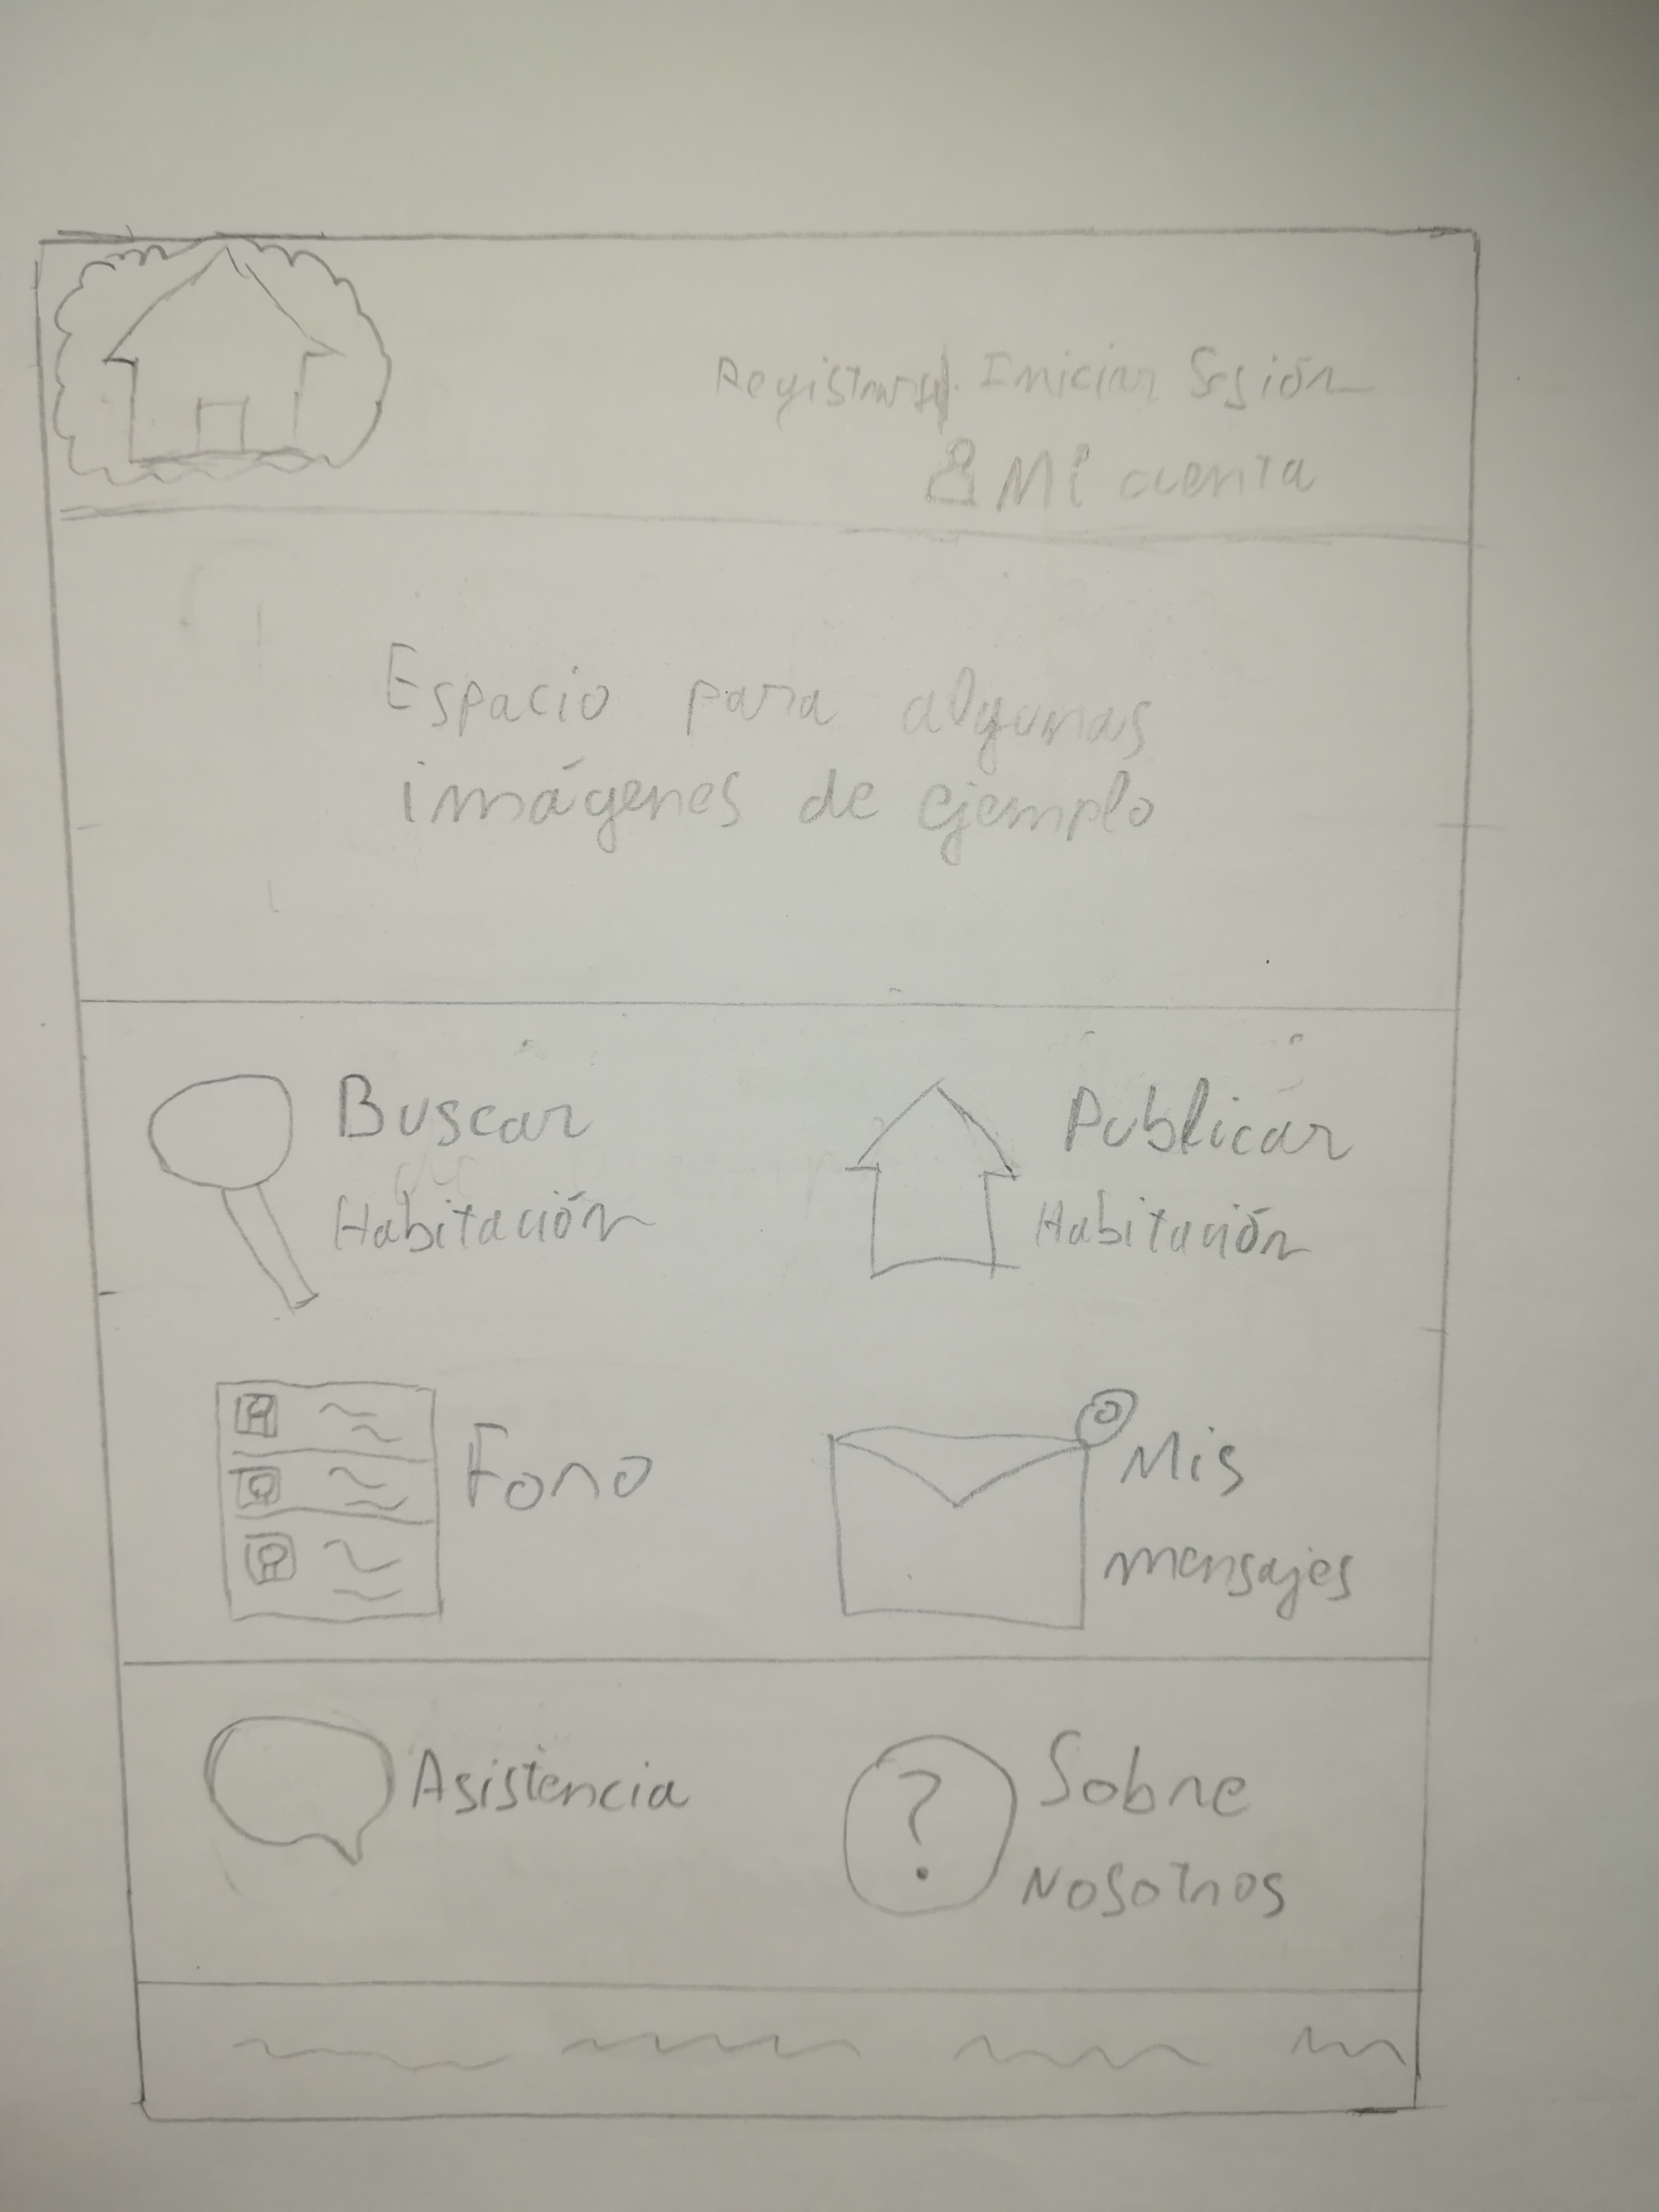 Registrarse Iniciar Sesión
Mi cuenta
Espacio para algunas
imágenes de ejemplo
Buscar
Habitación
Publicar
Habitación
Foro
Mis
mensajes
Asistencia
?
Sobre
Nosotros